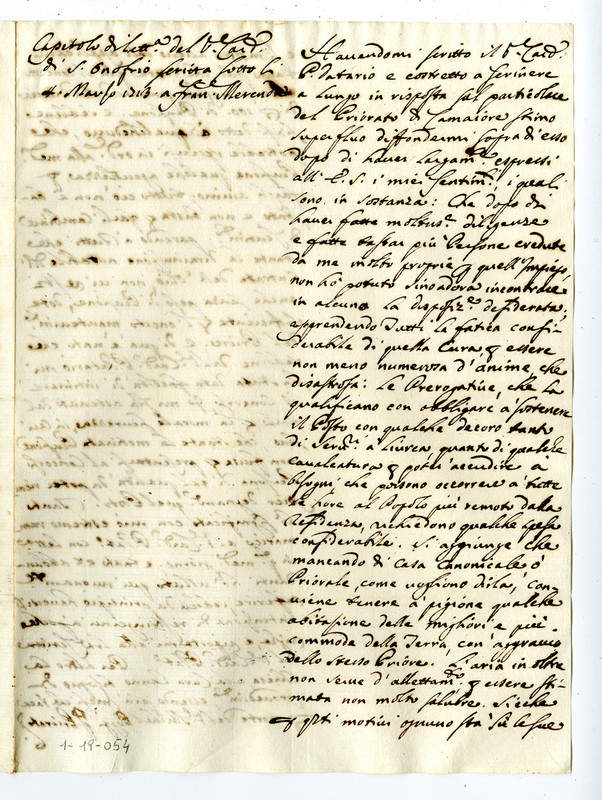 Capitolo di lett.ª del S.r Card.
di S. Onofrio scritta sotto li
4. Marzo 1713. a Fran.º Merenda
Havendomi scritto il S.r Card.
P. Datario e costretto a scrivere
a lungo in risposta sul particolare
del Priorato di Camaiore stimo
superfluo diffondermi sopra di esso
dopo di haver largam.te espressi
all' E. S. i miei sentim.ti, i quali
sono in sostanza: Che dopo di
haver fatte moltiss.e diligenze
e fatte tastar più Persone credute
da me molto proprie p quell' Impiego,
non hò potuto sinoadora incontrare
in alcuno la disposiz.e desiderata;
apprendendo tutti la fatica consi-
derabile di quella Cura p essere
non meno numerosa d'anime, che
disastrosa: Le Prerogative, che la
qualificano con obbligare à sostenere
il Posto con qualche decoro tanto
di Serv.ù à livrea quanto di qualche
cavalcatura p poter accudire a
bisogni che possono occorrere a tutte
le hore al Popolo più remoto dalla
Residenza, richiedono qualche spesa
considerabile. Si aggiunge che
mancando di Casa Canonicale ò
Priorale, come vogliono dirla, con-
viene tenere à pigione qualche
abitazione delle migliori e più
commode della Terra, con aggravio
dello stesso Priore. L'aria in oltre
non serve d'allettam.to p essere sti-
mata non molto salubre. Siche
p q.sti motivi ognuno stà sù le sue
1-19-054